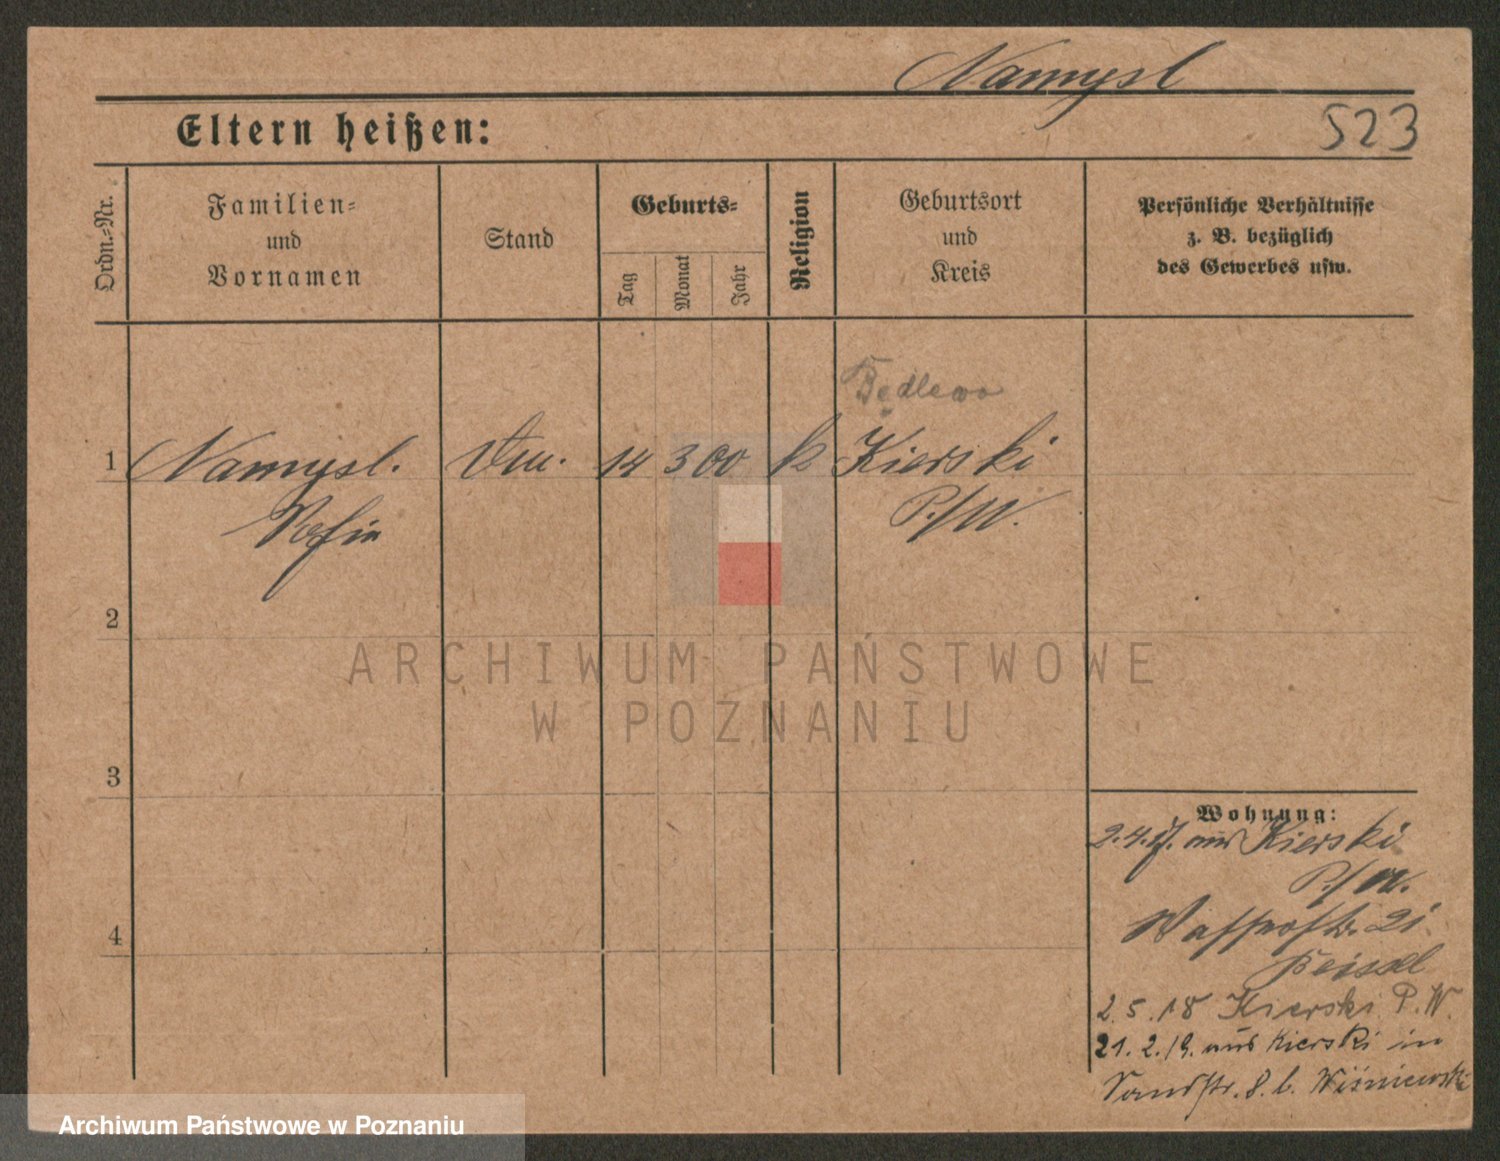 Namysl
523
Eltern heißen:
Ordn.-Nr.
Familien-
und
Vornamen
Stand
Geburts-
Tag
Monat
Jahr
Religion
Geburtsort
und
Kreis
Persönliche Verhältnisse
z. B. bezüglich
des Gewerbes usw.
Będlewo
1 Namysl. 14 3 00 k Kierski
Sofia P./W.
2
ARCHIWUM PAŃSTWOWE
W POZNANIU
3
Wohnung:
2.4.17. aus Kierski
P./W.
21
Beissel
4
2.5.18 Kierski P.W.
21.2.19. aus Kierski in
Sandstr. 8. b. Wiśniewski
Archiwum Państwowe w Poznaniu